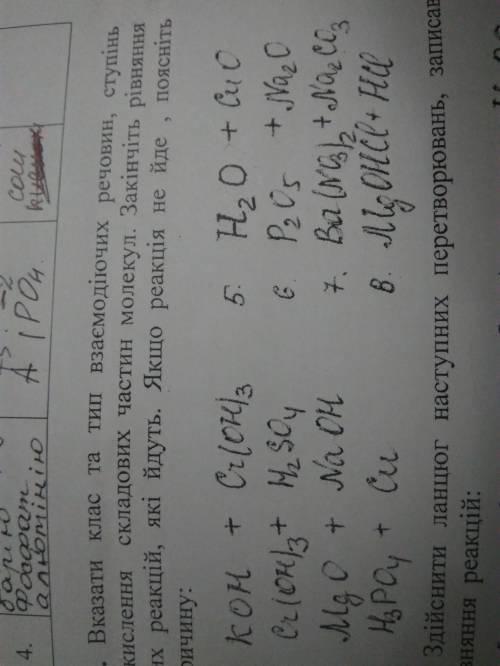 4.
фосфат
алюмінію
AlPO₄
солі
Вказати клас та тип взаємодіючих речовин, ступінь
окислення складових частин молекул. Закінчіть рівняння
их реакцій, які йдуть. Якщо реакція не йде , поясніть
ричину:
KOH + Cr(OH)₃ 5. H₂O + CuO
Cr(OH)₃ + H₂SO₄ 6. P₂O₅ + Na₂O
MgO + NaOH 7. Ba(NO₃)₂ + Na₂CO₃
H₃PO₄ + Cu 8. MgOHCl + HCl
Здійснити ланцюг наступних перетворювань, записав
вняння реакцій: